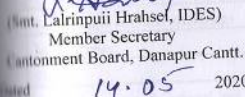 (Smt. Lalrinpuii Hrahsel, IDES)
Member Secretary
Cantonment Board, Danapur Cantt.
14.05 2020